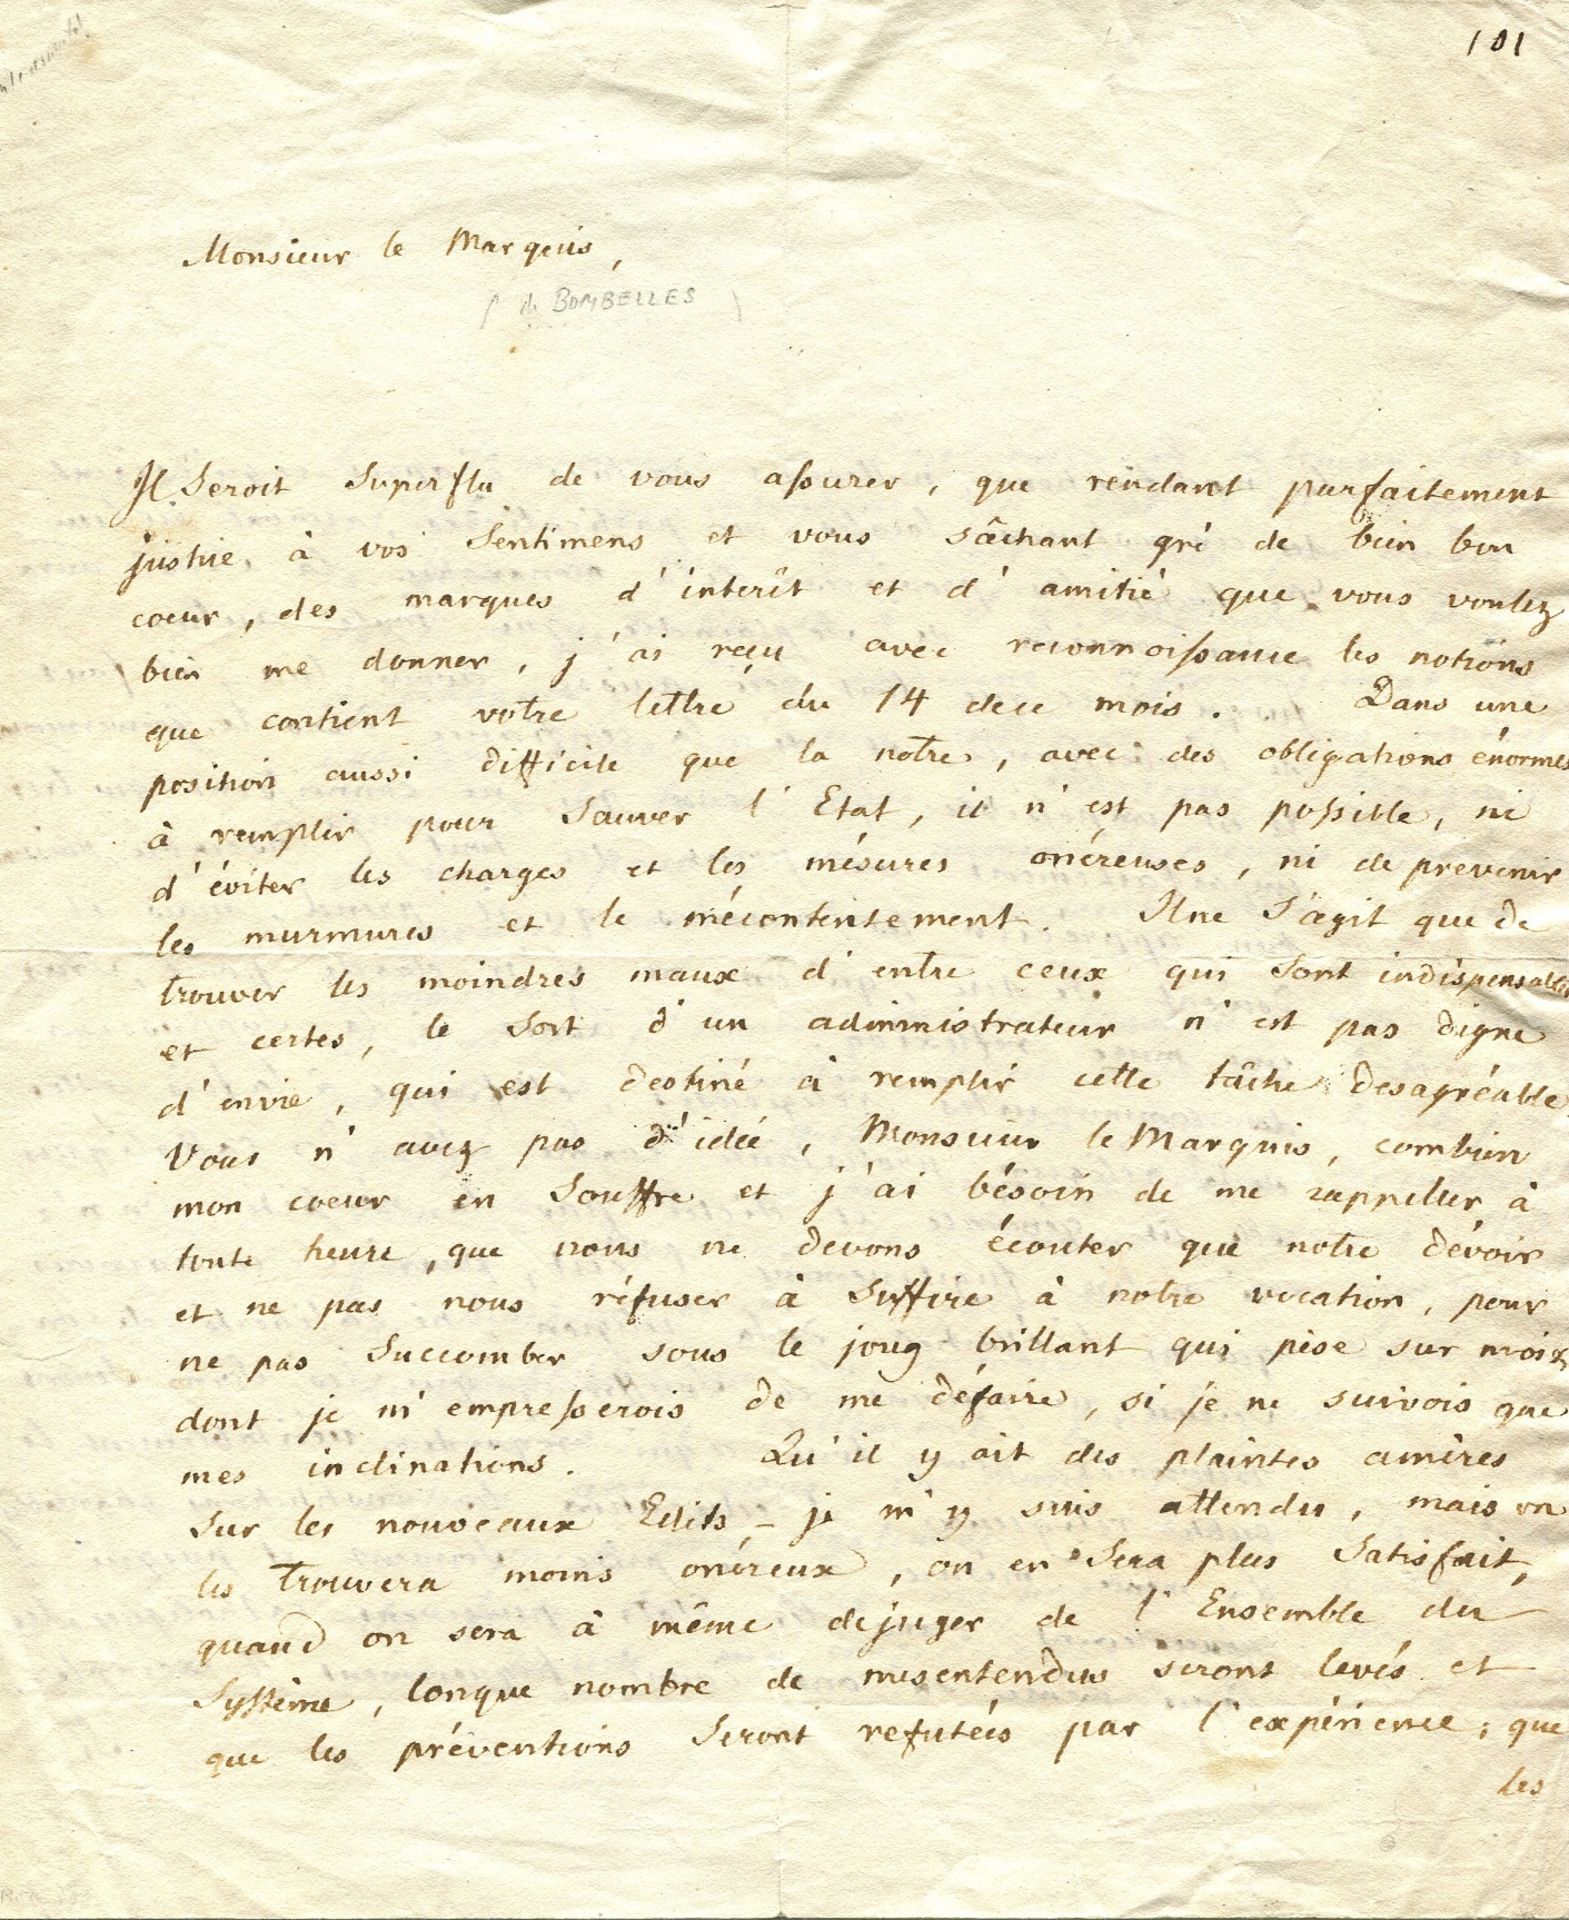 101
Monsieur le Marquis,
( de BOMBELLES )
Il Seroit Superflu de vous assurer, que rendant parfaitement
justice à vos Sentimens et vous sâchant gré de bien bon
coeur, des marques d'intérêt et d'amitié que vous voulez
bien me donner, j'ai reçu avec reconnoissance les notions
que contient votre lettre du 14 de ce mois. Dans une
position aussi difficile que la notre, avec des obligations énormes
à remplir pour Sauver l'Etat, il n'est pas possible, ni
d'éviter les charges et les mésures onéreuses, ni de prevenir
les murmures et le mécontentement. Il ne S'agit que de
trouver les moindres maux d'entre ceux qui Sont indispensables
et certes, le Sort d'un administrateur n'est pas digne
d'envie, qui est destiné à remplir cette tâche desagréable.
Vous n'avez pas d'idée, Monsieur le Marquis, combien
mon coeur en Souffre et j'ai bésoin de me rappeller à
toute heure, que nous ne devons écouter que notre dévoir
et ne pas nous réfuser à Suffire à notre vocation, pour
ne pas Succomber sous le joug brillant qui pèse sur moi &
dont je m'empresserois de me défaire, si je ne suivois que
mes inclinations. Qu'il y ait des plaintes amères
Sur les nouveaux Edits - je m'y suis attendu, mais on
les trouvera moins onéreux, on en Sera plus Satisfait,
quand on sera à même de juger de l'Ensemble du
Système, lorsque nombre de mesentendus seront levés et
que les préventions Seront refutées par l'expérience; que
les